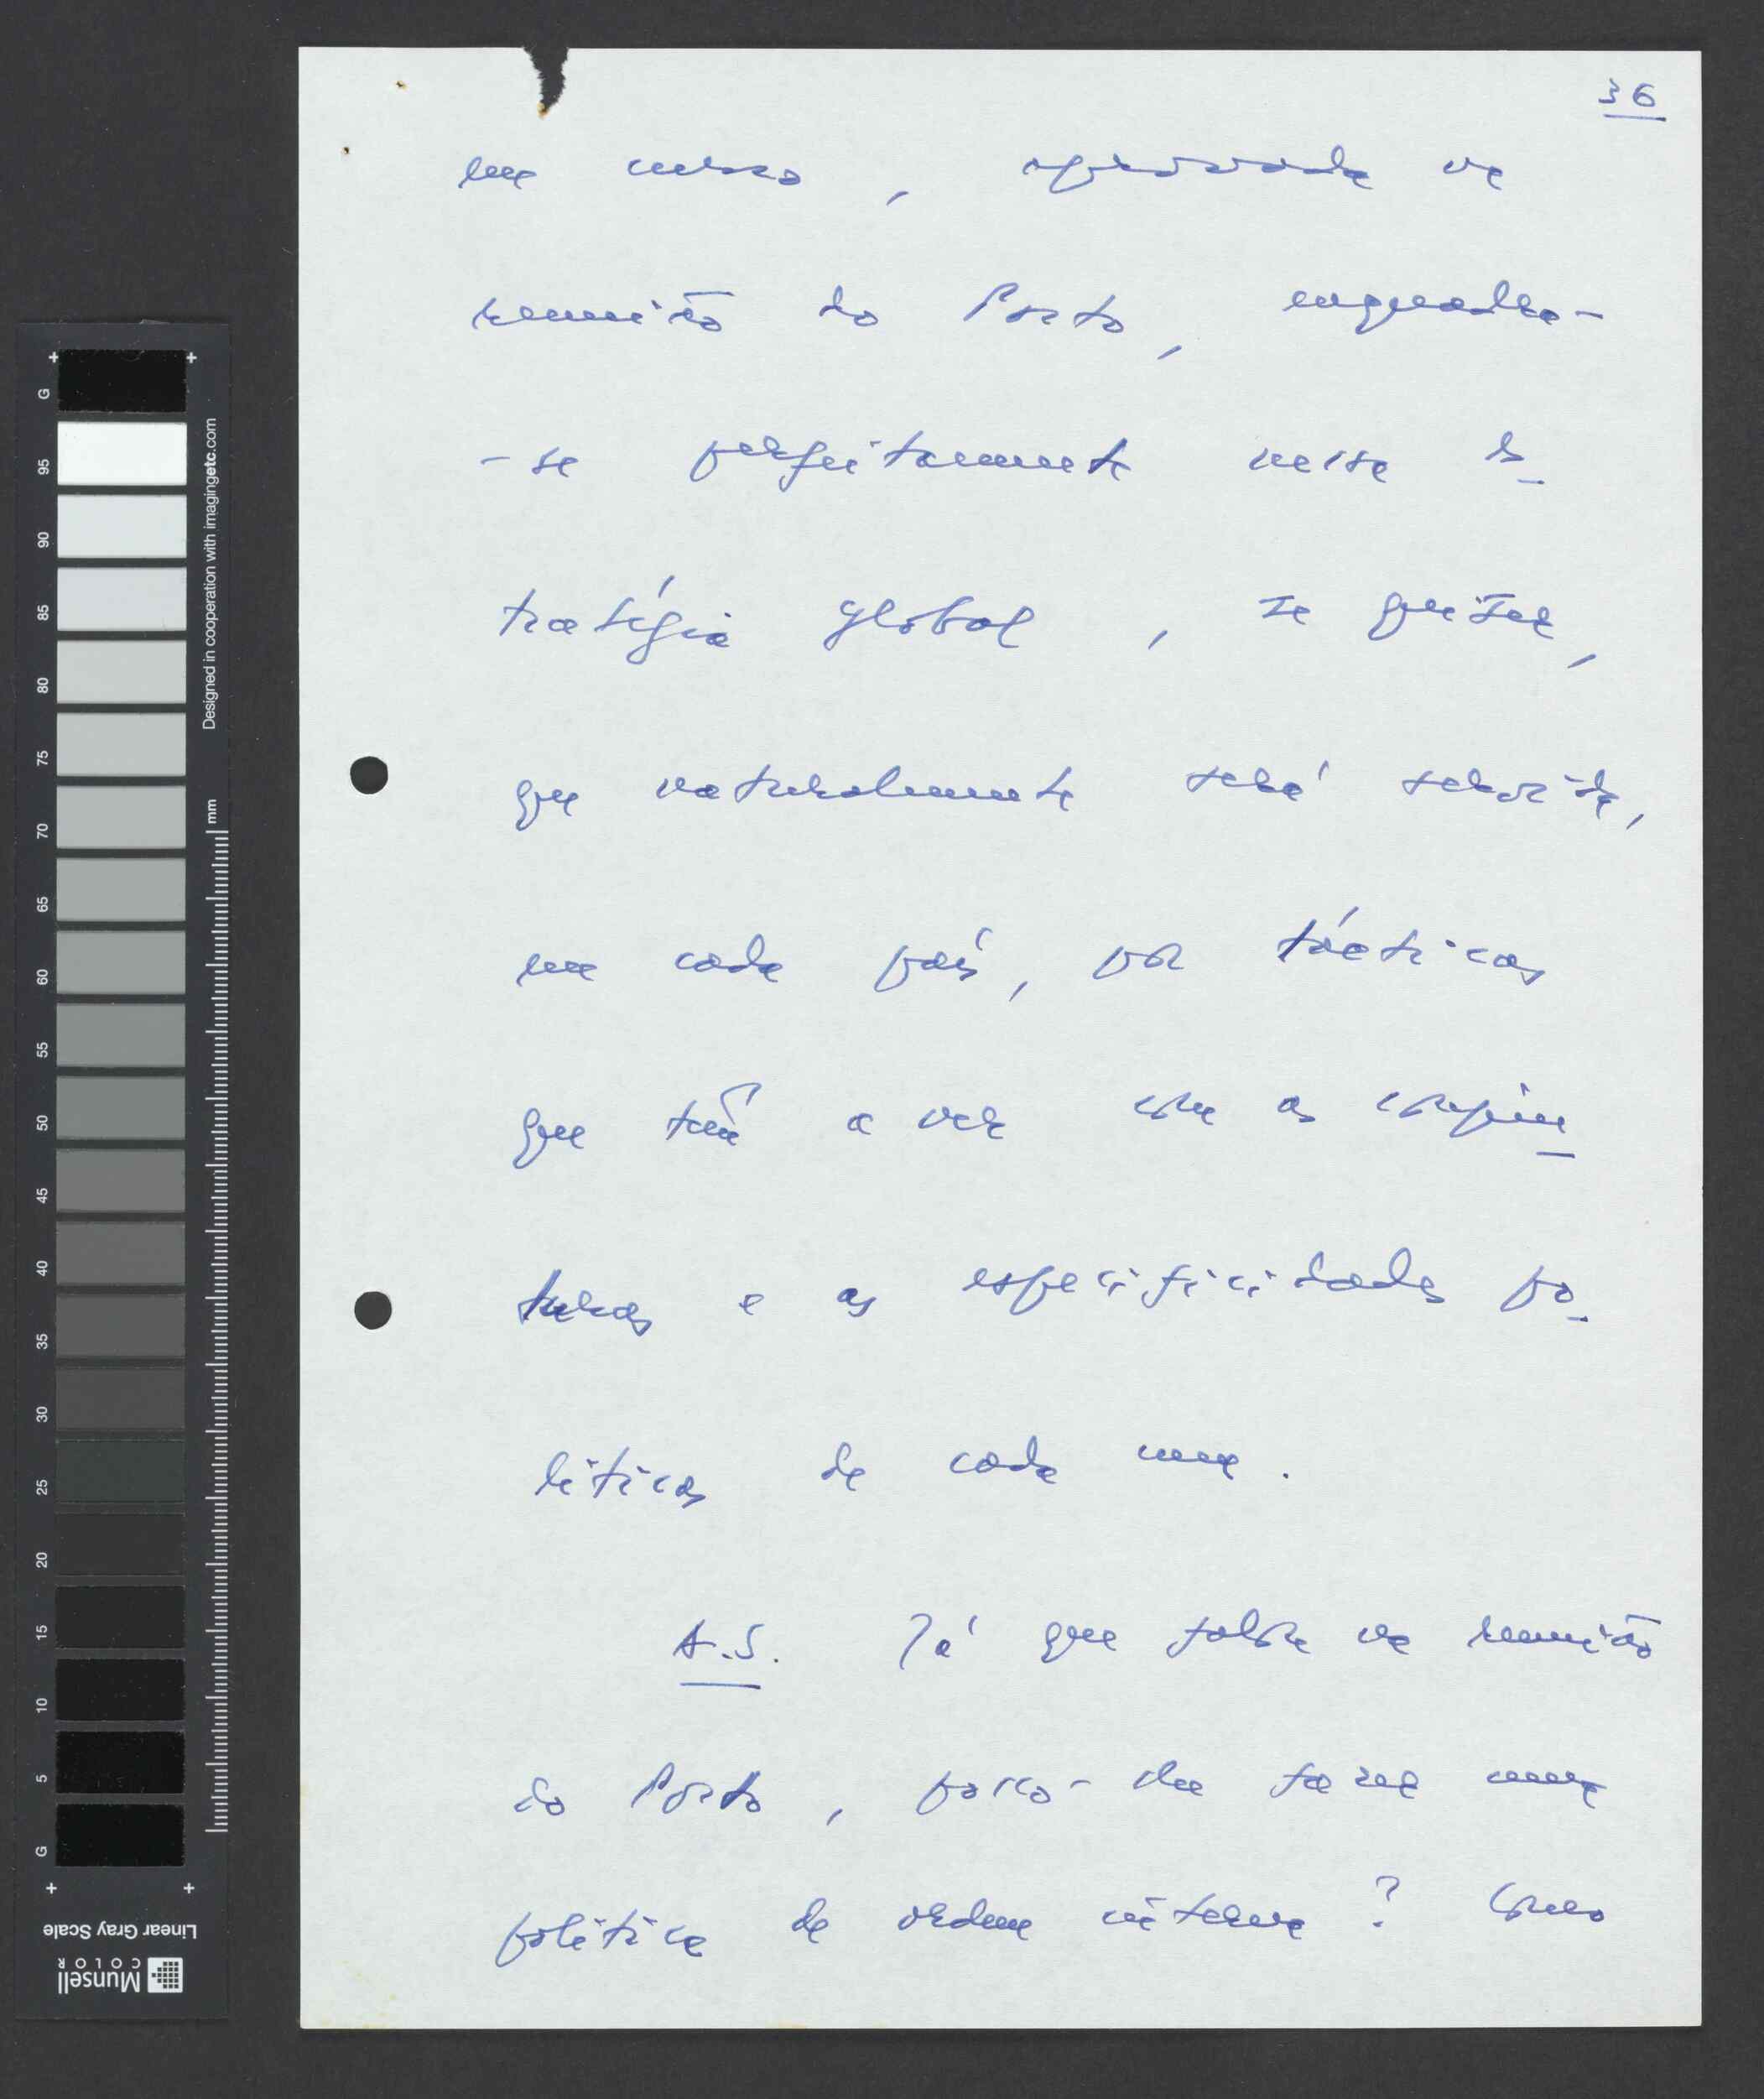 36
em curso, aprovada na
reunião do Porto, enquadra-
-se perfeitamente nessa es-
tratégia global, se quiser,
que naturalmente será servida,
em cada país, por tácticas
que têm a ver com as conjun-
turas e as especificidades po-
líticas de cada um.
A.S. Já que falou na reunião
do Porto, posso-lhe fazer uma
política de ordem interna? Como
G
95
90
85
80
75
70
65
60
55
50
45
40
35
30
25
20
15
10
5
G
Designed in cooperation with imagingetc.com
mm
Linear Gray Scale
Munsell
COLOR